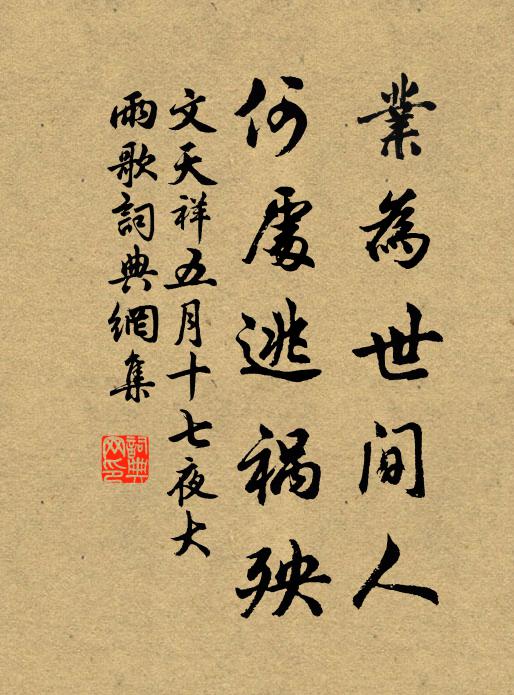 業為世間人
何處逃禍殃
文天祥五月十七夜大
雨歌詞典網集
詞典
网印